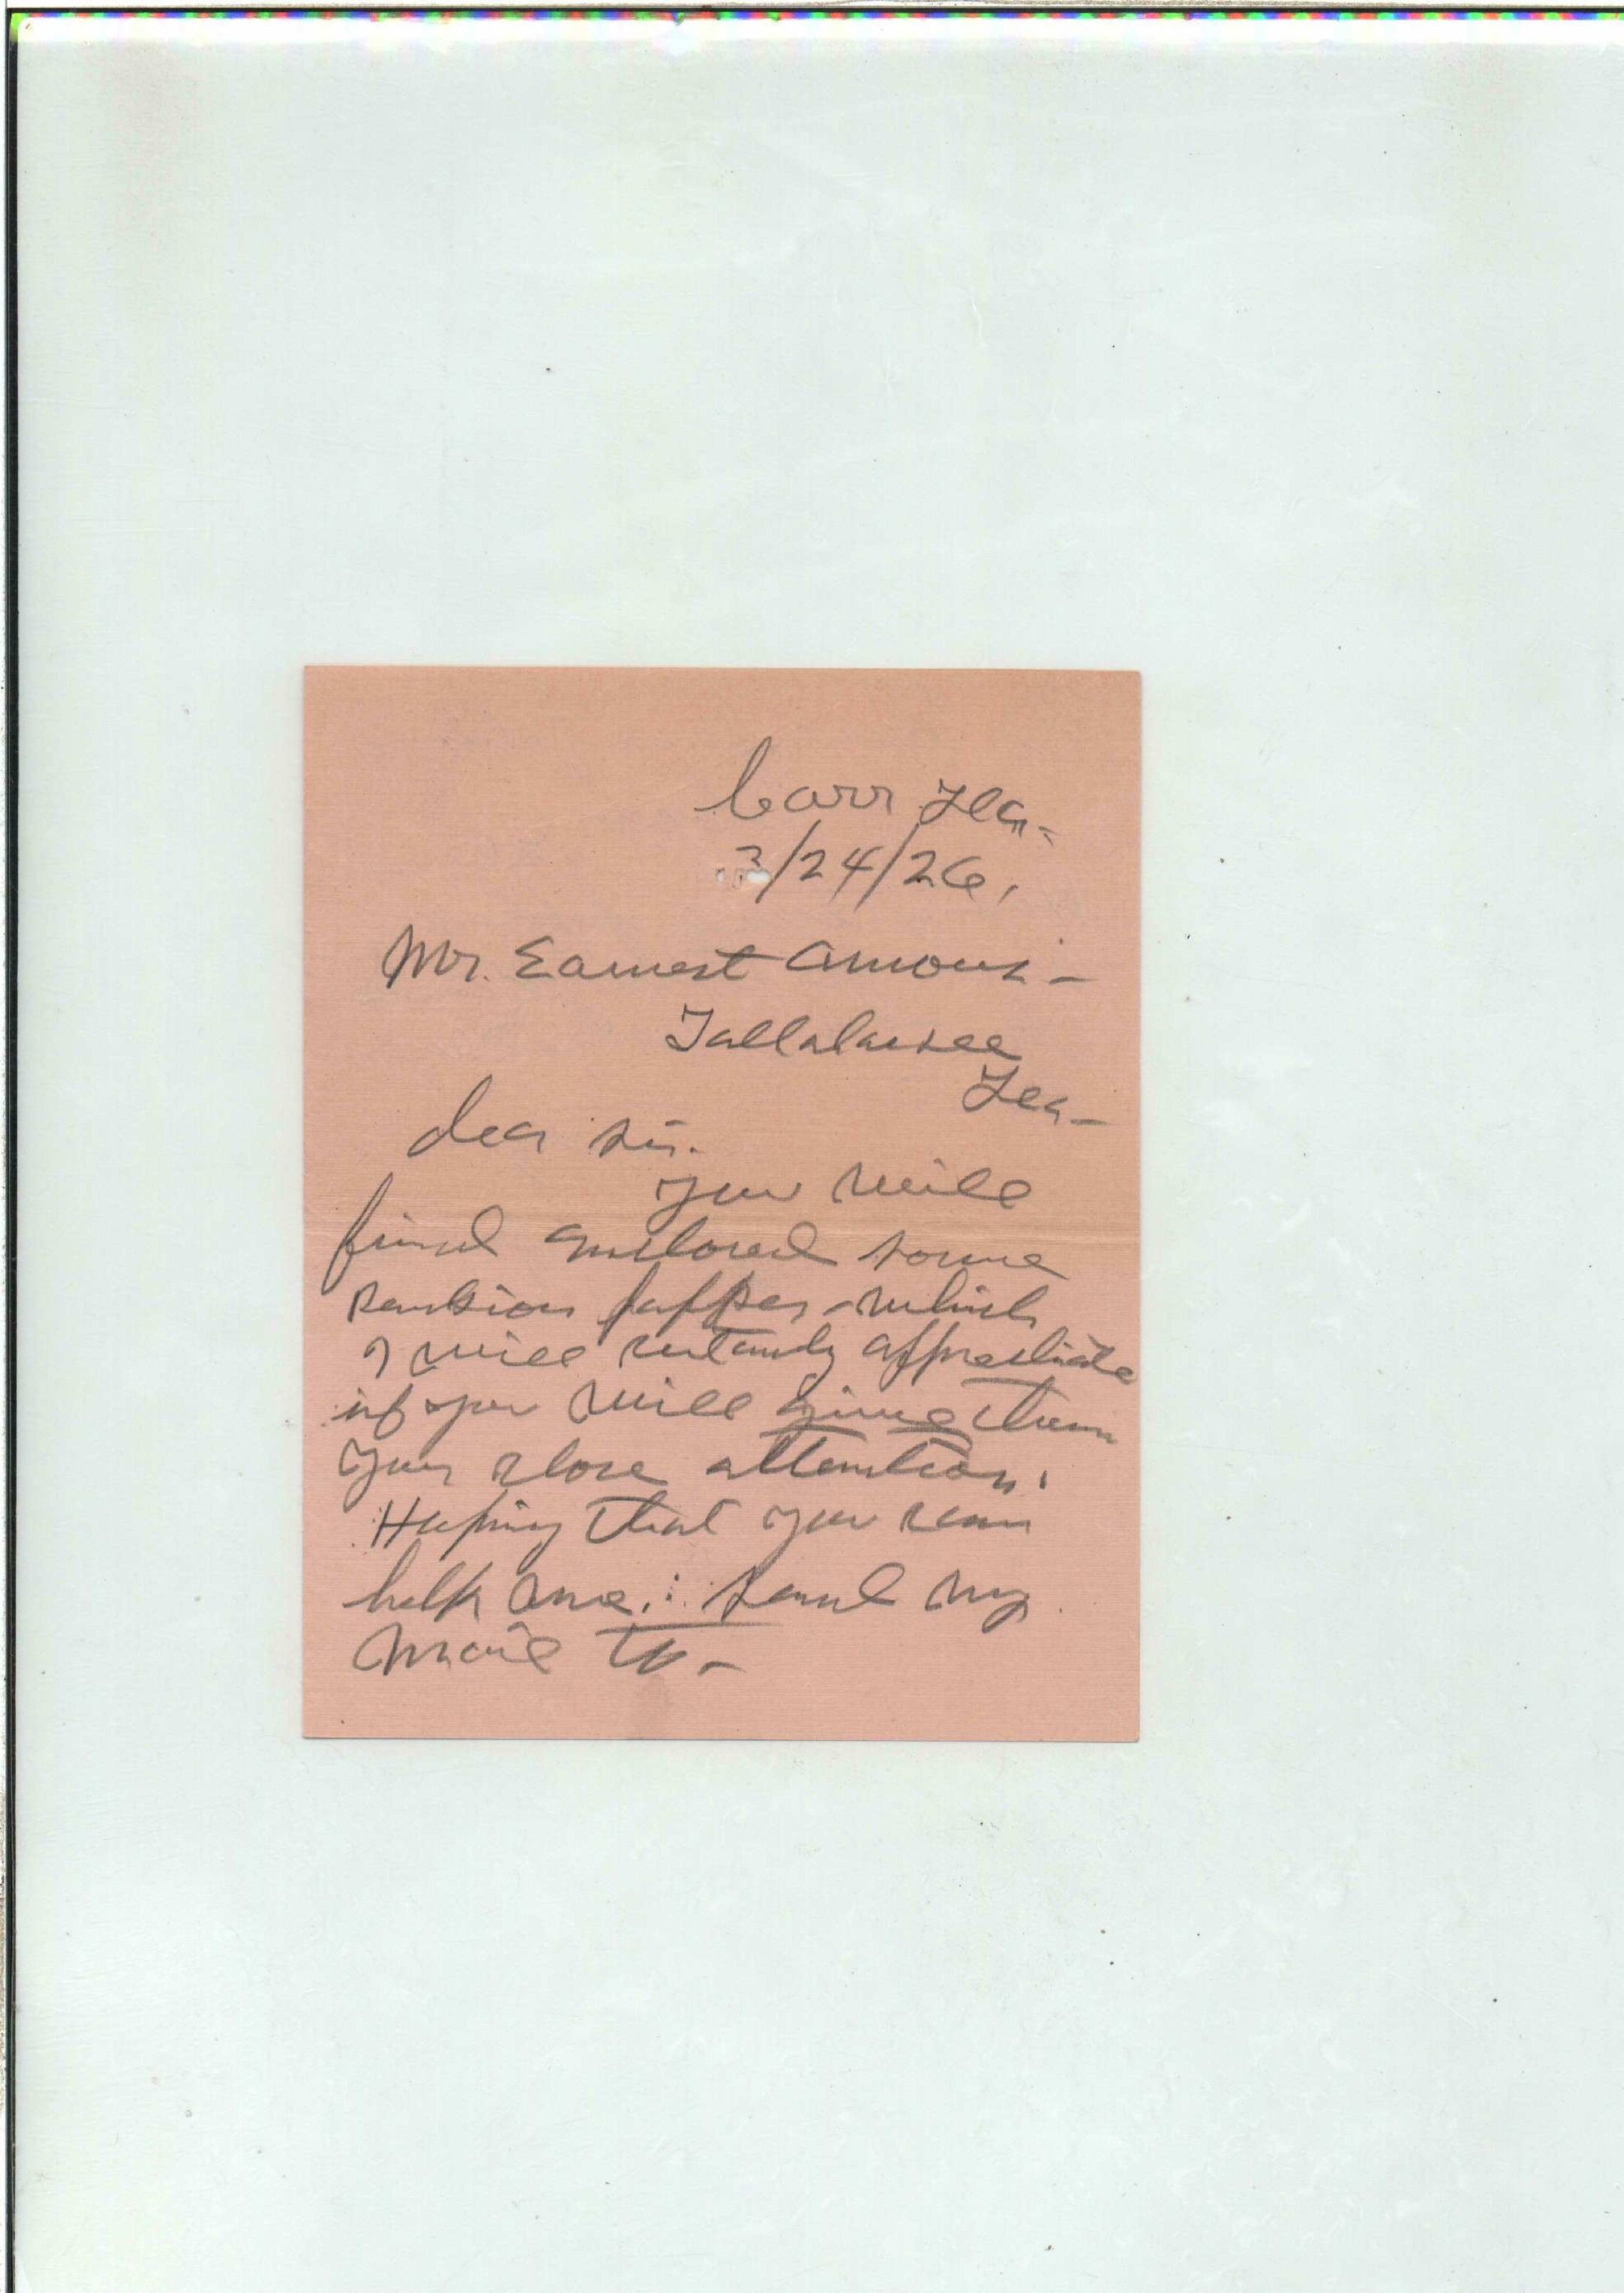 Carr Fla-
3/24/26,
Mr. Earnest Amous-
Tallahassee
Fla-
dear sir.
you will
find enclosed some
pension pappers - which
I will certanly appreciate
if you will give them
your close attention.
Hoping that you can
help me. send my
mail to -